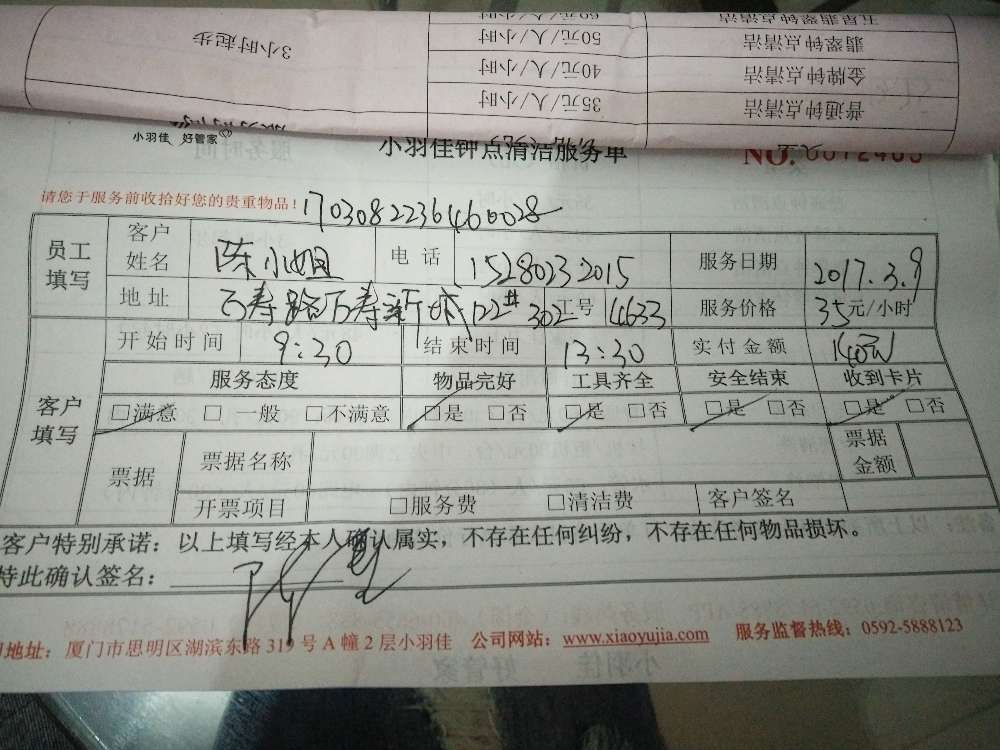 五星翡翠钟点清洁 60元/人/小时
翡翠钟点清洁 50元/人/小时
金牌钟点清洁 40元/人/小时
普通钟点清洁 35元/人/小时
3小时起步
小羽佳 好管家
小羽佳钟点清洁服务单
NO.
请您于服务前收拾好您的贵重物品！ 1703082236460028
员工填写 客户姓名 陈小姐 电话 15280232015 服务日期 2017.3.9
地址 万寿路万寿新城22#302 工号 14633 服务价格 35元/小时
客户填写 开始时间 9:30 结束时间 13:30 实付金额 140元
服务态度 物品完好 工具齐全 安全结束 收到卡片
□满意 □一般 □不满意 □是 □否 □是 □否 □是 □否 □是 □否
票据 票据名称 票据金额
开票项目 □服务费 □清洁费 客户签名
客户特别承诺：以上填写经本人确认属实，不存在任何纠纷，不存在任何物品损坏。
特此确认签名：
地址：厦门市思明区湖滨东路319号A幢2层小羽佳 公司网站：www.xiaoyujia.com 服务监督热线：0592-5888123